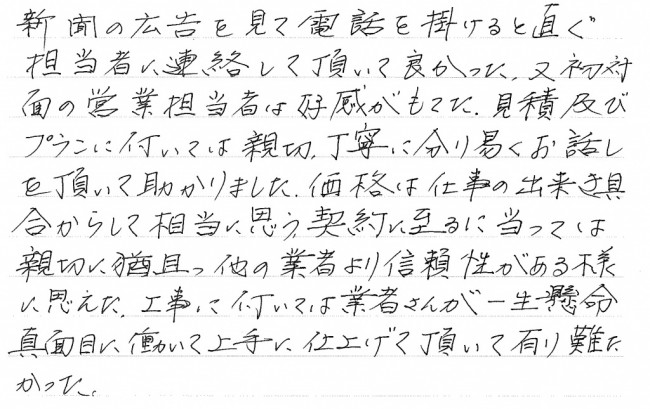 新聞の広告を見て電話を掛けると直ぐ
担当者に連絡して頂いて良かった。又初対
面の営業担当者は好感がもてた。見積及び
プランに付いては親切、丁寧に分り易くお話し
を頂いて助かりました。価格は仕事の出来き具
合からして相当に思う。契約に至るに当っては
親切に猶且つ他の業者より信頼性がある様
に思えた。工事に付いては業者さんが一生懸命
真面目に働いて上手に仕上げて頂いて有り難た
かった。